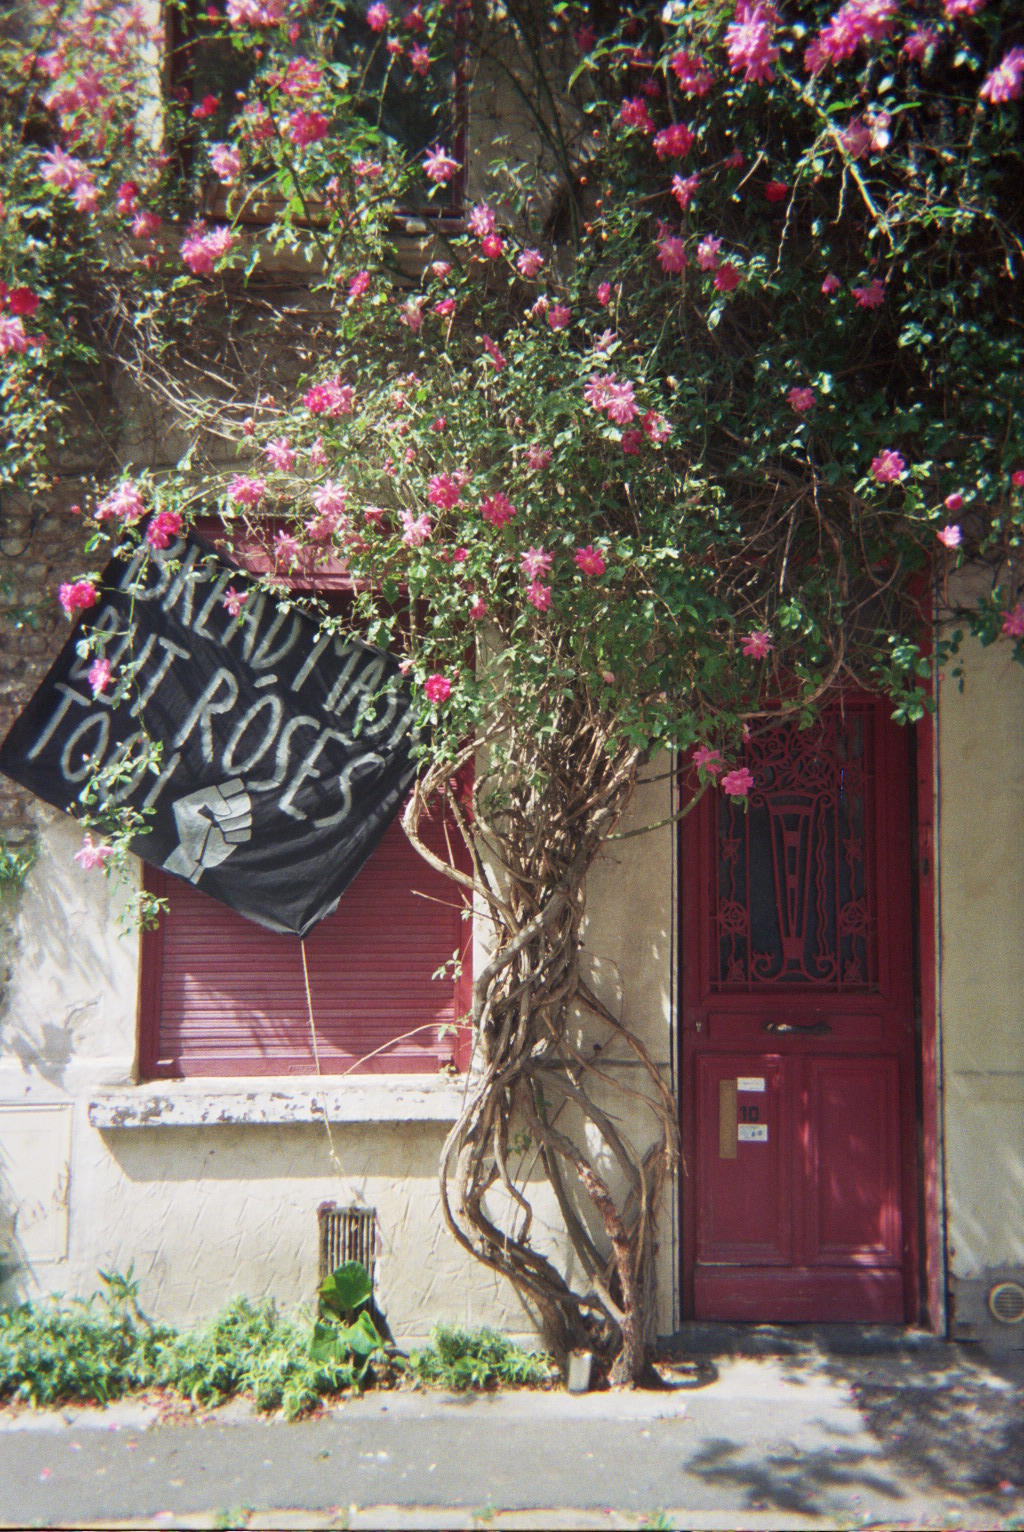 BREAD MAST
BUT ROSES
TOO!
10